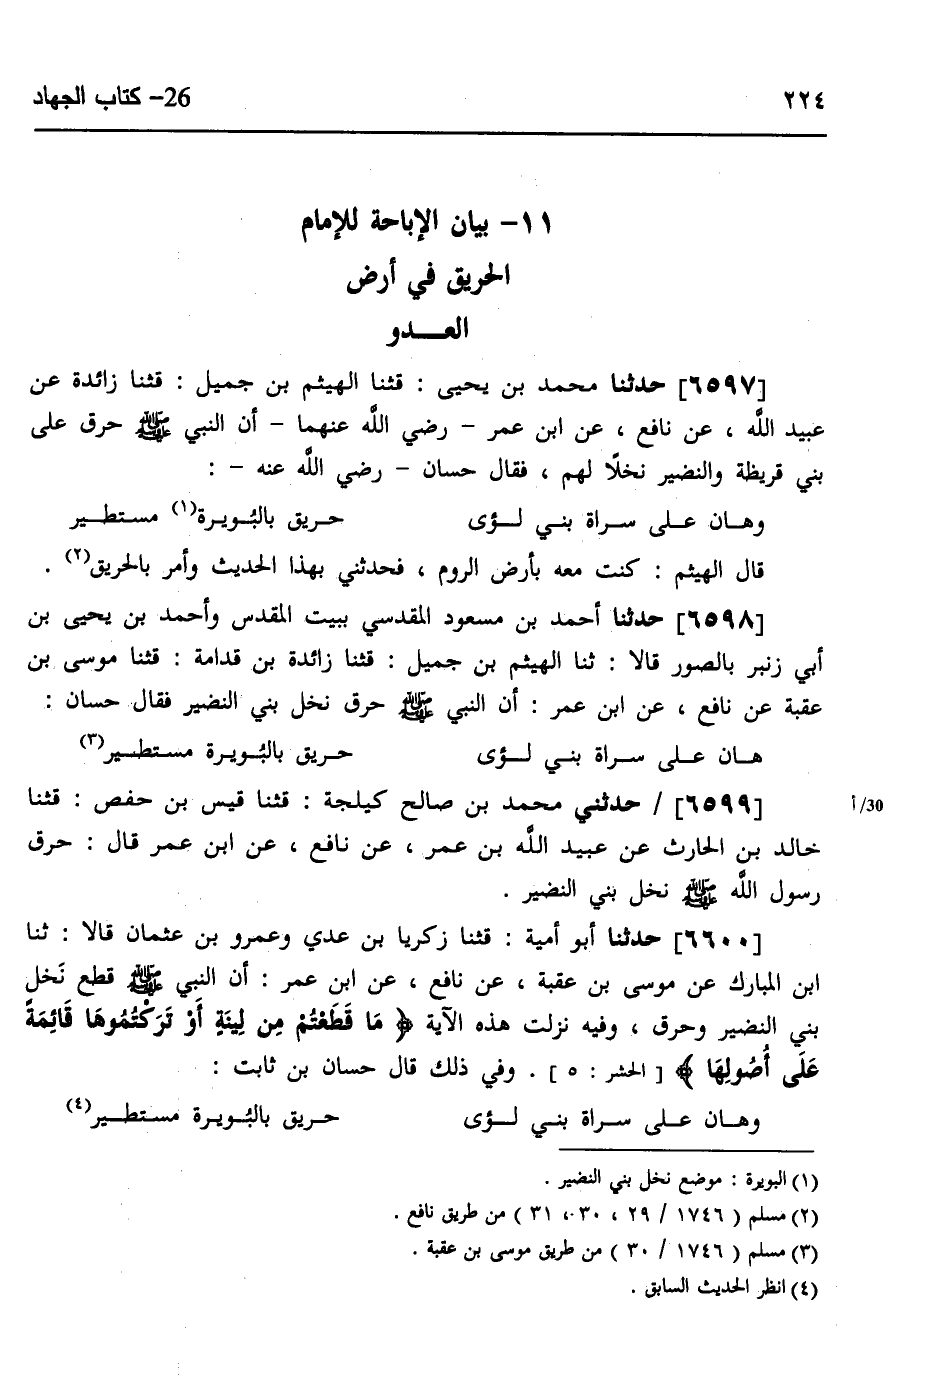 ٢٢٤
26- كتاب الجهاد
١١- بيان الإباحة للإمام
الحريق في أرض
العـــدو
[٦٥٩٧] حدثنا محمد بن يحيى : قثنا الهيثم بن جميل : قثنا زائدة عن
عبيد اللَّه ، عن نافع ، عن ابن عمر - رضي اللَّه عنهما - أن النبي ﷺ حرق على
بني قريظة والنضير نخلًا لهم ، فقال حسان - رضي اللَّه عنه - :
وهـان علـى سـراة بنـي لـؤى حـريق بالبُـويـرة(١) مستطيـر
قال الهيثم : كنت معه بأرض الروم ، فحدثني بهذا الحديث وأمر بالحريق(٢) .
[٦٥٩٨] حدثنا أحمد بن مسعود المقدسي ببيت المقدس وأحمد بن يحيى بن
أبي زنبر بالصور قالا : ثنا الهيثم بن جميل : قثنا زائدة بن قدامة : قثنا موسى بن
عقبة عن نافع ، عن ابن عمر : أن النبي ﷺ حرق نخل بني النضير فقال حسان :
هـان علـى سـراة بنـي لـؤى حـريق بالبُـويـرة مستطيـر(٣)
[٦٥٩٩] / حدثني محمد بن صالح كيلجة : قثنا قيس بن حفص : قثنا
30/أ
خالد بن الحارث عن عبيد اللَّه بن عمر ، عن نافع ، عن ابن عمر قال : حرق
رسول اللَّه ﷺ نخل بني النضير .
[٦٦٠٠] حدثنا أبو أمية : قثنا زكريا بن عدي وعمرو بن عثمان قالا : ثنا
ابن المبارك عن موسى بن عقبة ، عن نافع ، عن ابن عمر : أن النبي ﷺ قطع نَخل
بني النضير وحرق ، وفيه نزلت هذه الآية ﴿ مَا قَطَعْتُمْ مِن لِينَةٍ أَوْ تَرَكْتُمُوهَا قَائِمَةً
عَلَى أُصُولِهَا ﴾ [ الحشر : ٥ ] . وفي ذلك قال حسان بن ثابت :
وهـان علـى سـراة بنـي لـؤى حـريق بالبُـويـرة مستطيـر(٤)
(١) البويرة : موضع نخل بني النضير .
(٢) مسلم ( ١٧٤٦ / ٢٩ ، ٣٠ ، ٣١ ) من طريق نافع .
(٣) مسلم ( ١٧٤٦ / ٣٠ ) من طريق موسى بن عقبة .
(٤) انظر الحديث السابق .